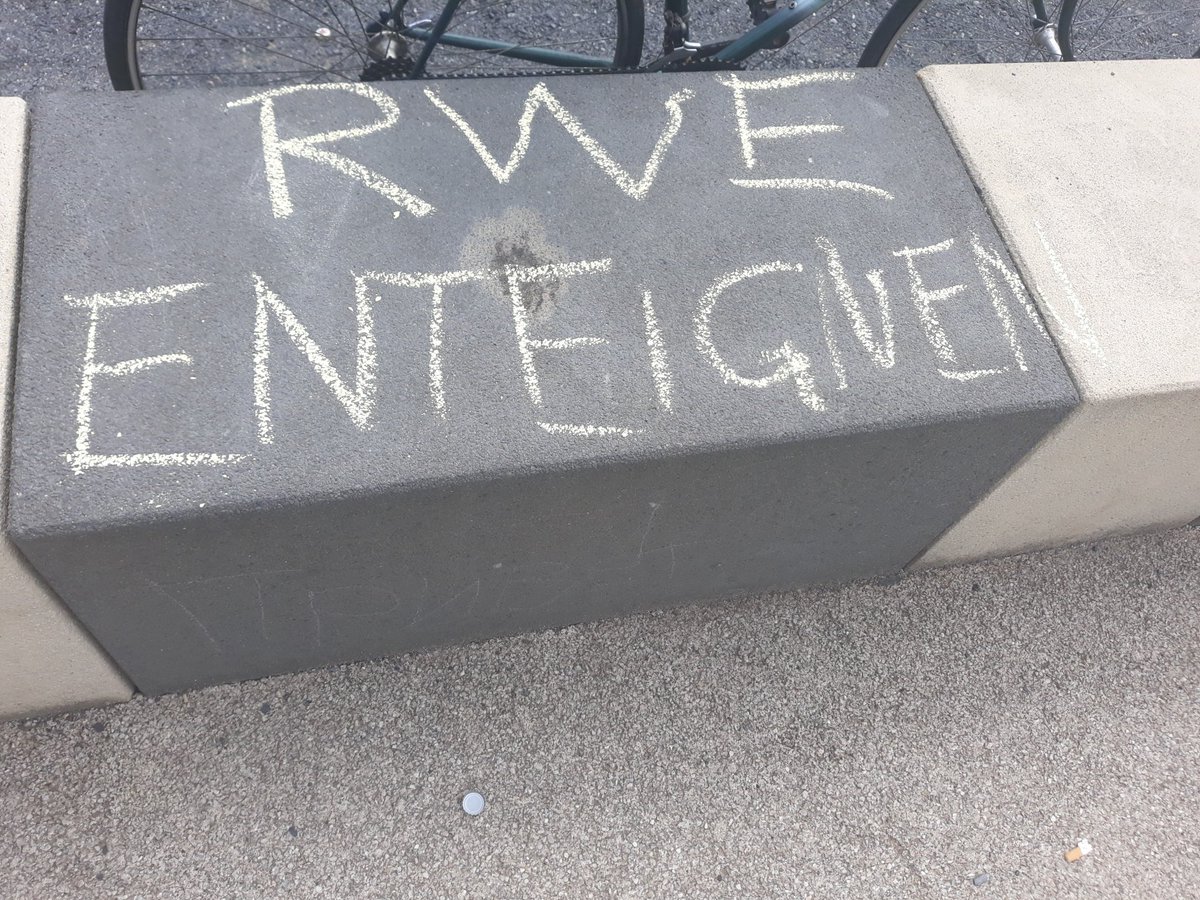 RWE
ENTEIGNEN